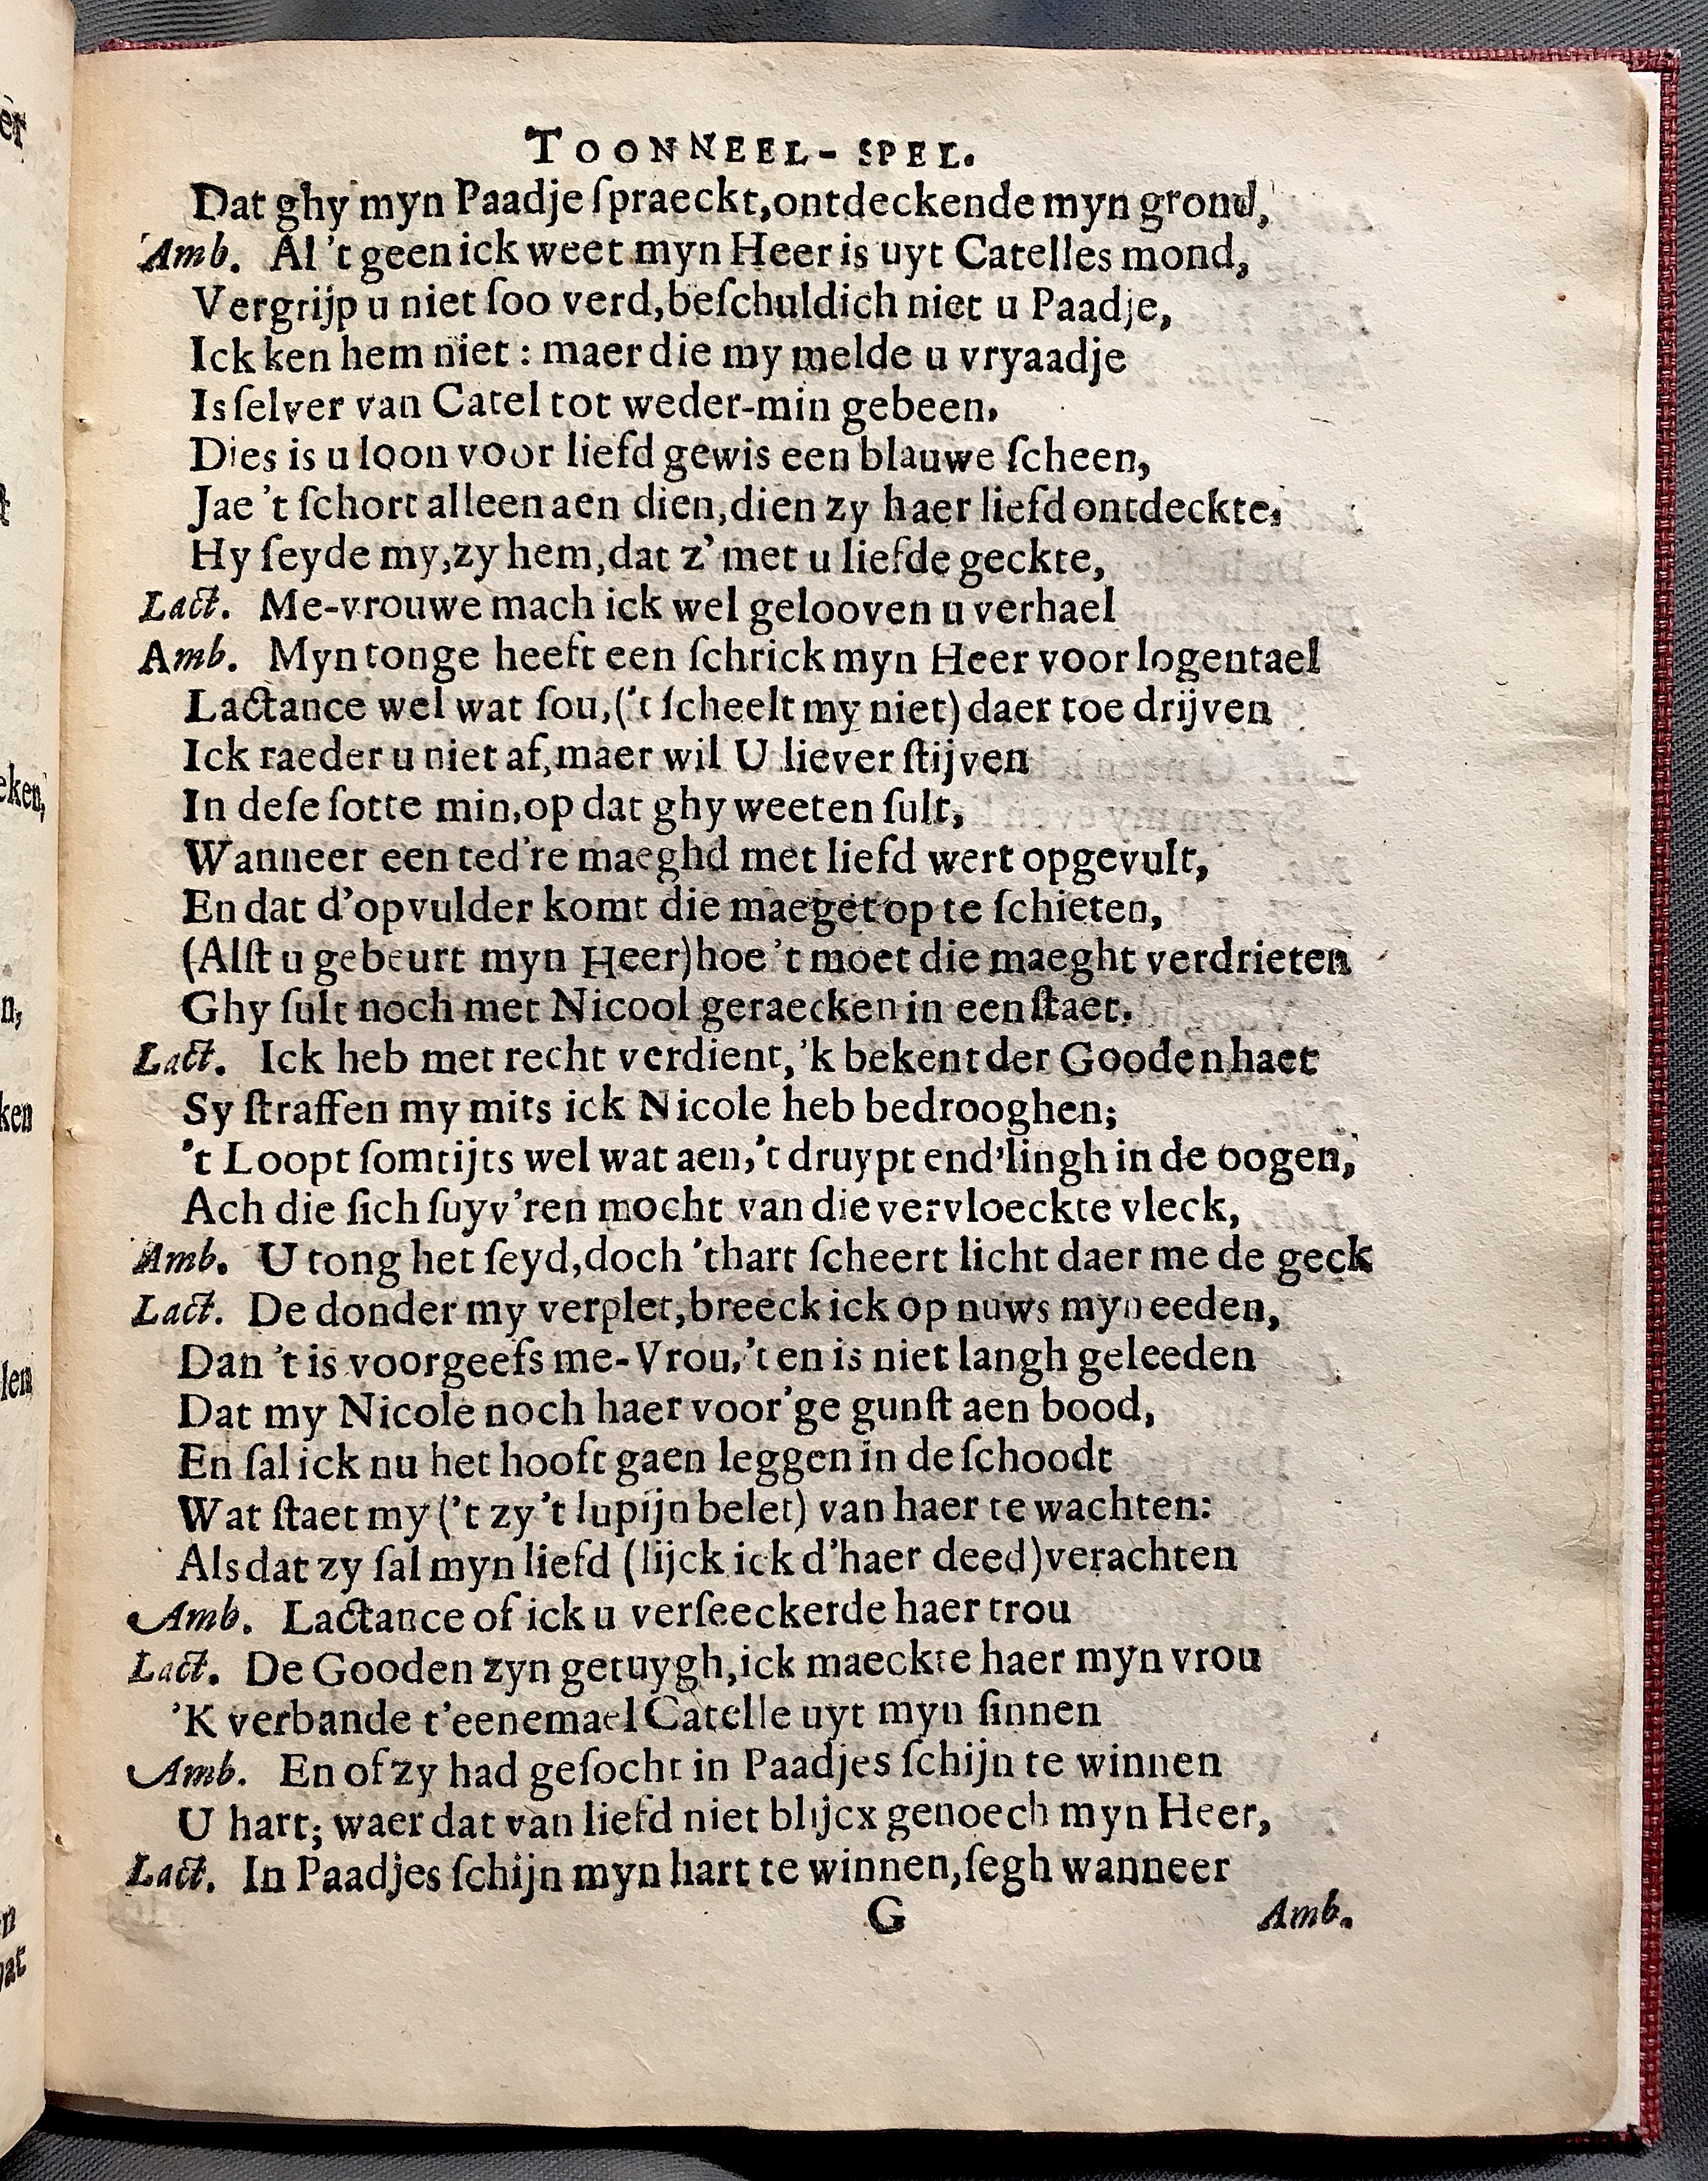 TOONNEEL-SPEL.
Dat ghy myn Paadje ſpraeckt, ontdeckende myn grond,
Amb. Al 't geen ick weet myn Heer is uyt Catelles mond,
Vergrijp u niet ſoo verd, beſchuldich niet u Paadje,
Ick ken hem niet : maer die my melde u vryaadje
Is ſelver van Catel tot weder-min gebeen,
Dies is u loon voor liefd gewis een blauwe ſcheen,
Jae 't ſchort alleen aen dien, dien zy haer liefd ontdeckte,
Hy ſeyde my, zy hem, dat z' met u liefde geckte,
Lact. Me-vrouwe mach ick wel gelooven u verhael
Amb. Myn tonge heeft een ſchrick myn Heer voor logentael
Lactance wel wat ſou, ('t ſcheelt my niet) daer toe drijven
Ick raeder u niet af, maer wil U liever ſtijven
In deſe ſotte min, op dat ghy weeten ſult,
Wanneer een ted're maeghd met liefd wert opgevult,
En dat d'opvulder komt die maeget op te ſchieten,
(Alſt u gebeurt myn Heer) hoe 't moet die maeght verdrieten
Ghy ſult noch met Nicool geraecken in een ſtaet.
Lact. Ick heb met recht verdient, 'k bekent der Gooden haet
Sy ſtraffen my mits ick Nicole heb bedrooghen;
't Loopt ſomtijts wel wat aen, 't druypt end'lingh in de oogen,
Ach die ſich ſuyv'ren mocht van die vervloeckte vleck,
Amb. U tong het ſeyd, doch 'thart ſcheert licht daer me de geck
Lact. De donder my verplet, breeck ick op nuws myn eeden,
Dan 't is voorgeefs me-Vrou, 't en is niet langh geleeden
Dat my Nicole noch haer voor'ge gunſt aen bood,
En ſal ick nu het hooft gaen leggen in de ſchoodt
Wat ſtaet my ('t zy 't lupijn belet) van haer te wachten:
Als dat zy ſal myn liefd (lijck ick d'haer deed) verachten
Amb. Lactance of ick u verſeeckerde haer trou
Lact. De Gooden zyn getuygh, ick maeckte haer myn vrou
'K verbande t'eenemael Catelle uyt myn ſinnen
Amb. En of zy had geſocht in Paadjes ſchijn te winnen
U hart; waer dat van liefd niet blijcx genoech myn Heer,
Lact. In Paadjes ſchijn myn hart te winnen, ſegh wanneer
G Amb.